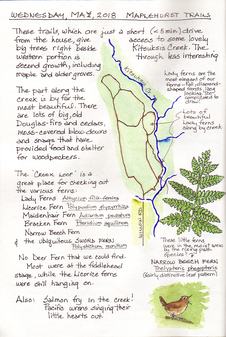 WEDNESDAY, MAY, 2018 MAPLEHURST TRAILS
These trails, which are just a short (<5min) drive
from the house, give access to some lovely
big trees right beside Kitsuksis Creek. The
western portion is through less interesting
second growth, including
maple and alder groves.
The part along
the creek is by far the
most beautiful. There
are lots of big, old
Douglas-firs and cedars,
moss-covered blow-downs
and snags that have
provided food and shelter
for woodpeckers.
Lady ferns are the
most elegant of our
ferns
Lots of
beautiful
Lady ferns
along by creek
The "Creek Loop" is a
great place for checking out
the various ferns:
Lady Ferns Athyrium filix-femina
Licorice Fern Polypodium glycyrrhiza
Maidenhair Fern Adiantum pedatum
Bracken Fern Pteridium aquilinum
Narrow Beech Fern
& the ubiquitous SWORD FERN
Polystichum munitum
These little ferns
were in the
by the
NARROW BEECH FERN
Thelypteris phegopteris
(fairly distinctive leaf pattern)
No Deer Fern that we could find.
Most were at the fiddlehead
stage, while the Licorice Ferns
were still hanging on.
Also: Salmon fry in the creek!
Pacific wrens singing their
little hearts out